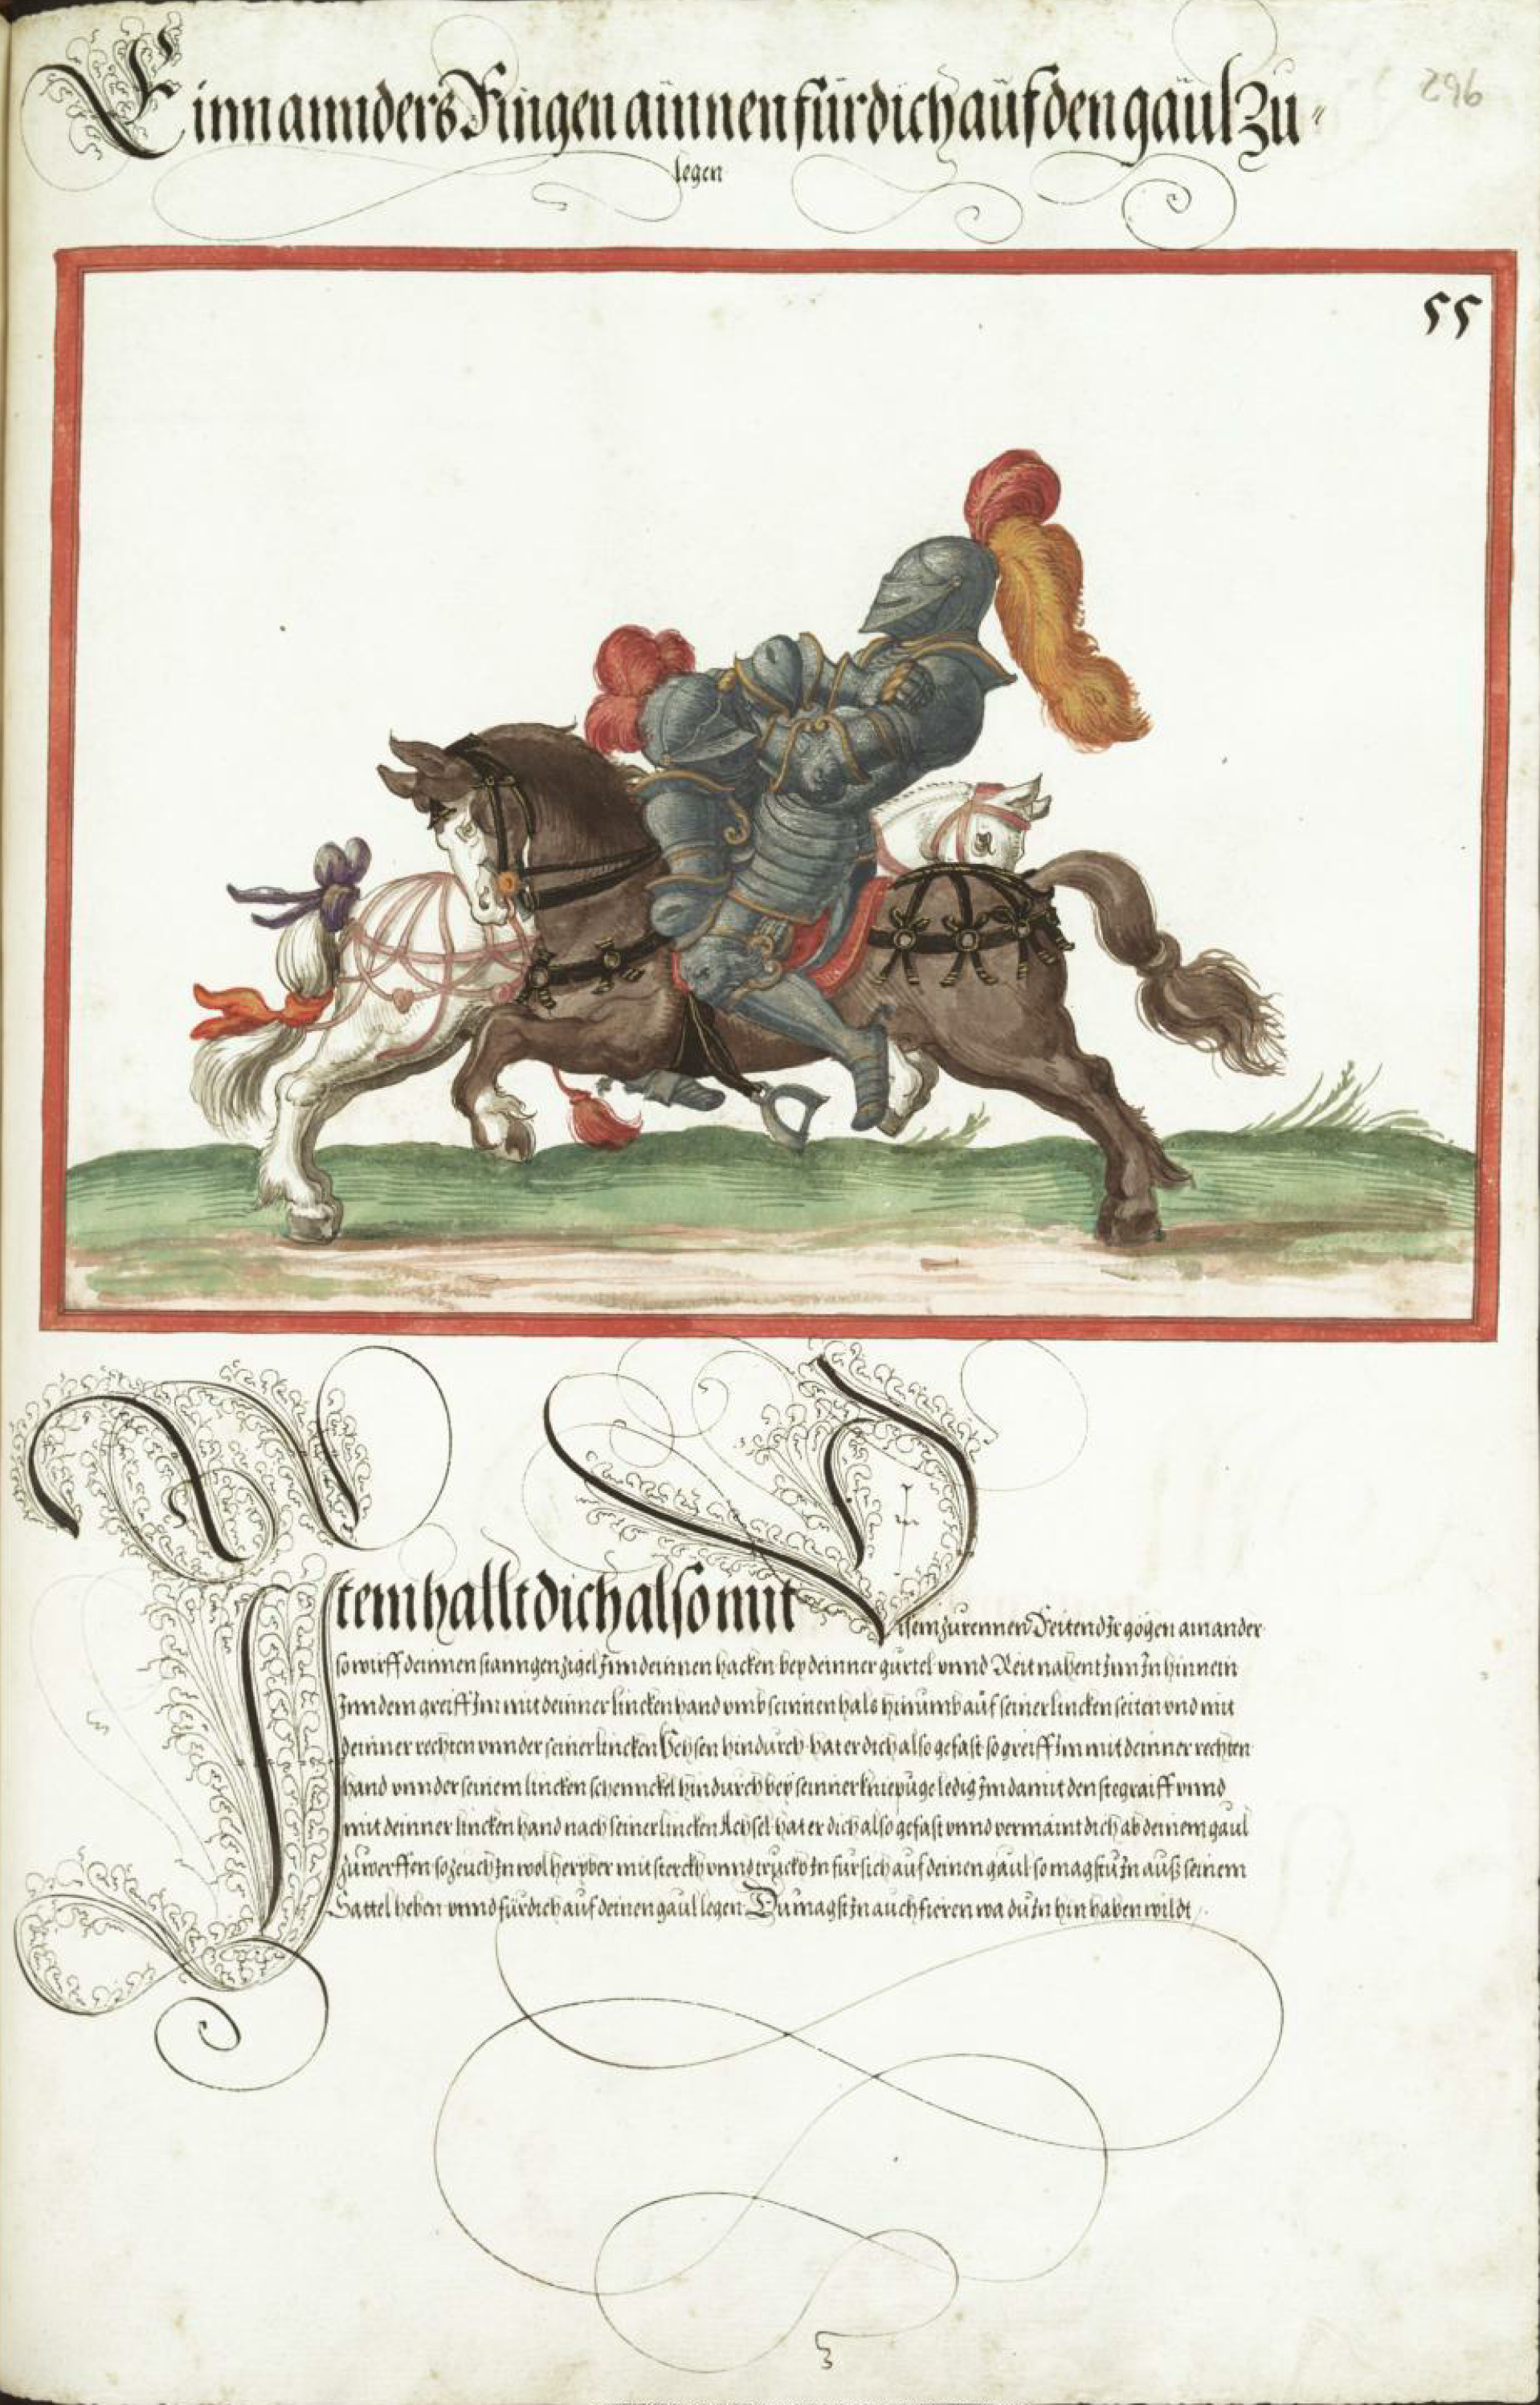 Einn annders Ringen ainnen für dich auf den gaul zu=
legen
296
55
Item hallt dich also mit
disem zurennen Reitend Ir gögen ainander
so wirff deinnen stanngen zigel Inn deinnen hacken bey deinner gürtel vnnd Reit nahent Inn In hinnein
Inn dem greiff Im mit deinner lincken hand vmb seinnen hals hinumb auf seiner lincken seiten vnd mit
deinner rechten vnnder seiner lincken Vchsen hindurch hat er dich also gefast so greiff Im mit deinner rechten
hand vnnder seinem lincken schennckel hindurch bey seinner kniepüge ledig Im damit den stegraiff vnnd
mit deinner lincken hand nach seiner lincken Achsel hat er dich also gefast vnnd vermaint dich ab deinem gaul
zuwerffen so zeuch In wol heryber mit sterckh vnnd truckh In für sich auf deinen gaul so magstu In auß seinem
Sattel heben vnnd für dich auf deinen gaul legen Du magst In auch fieren wa du In hin haben wildt